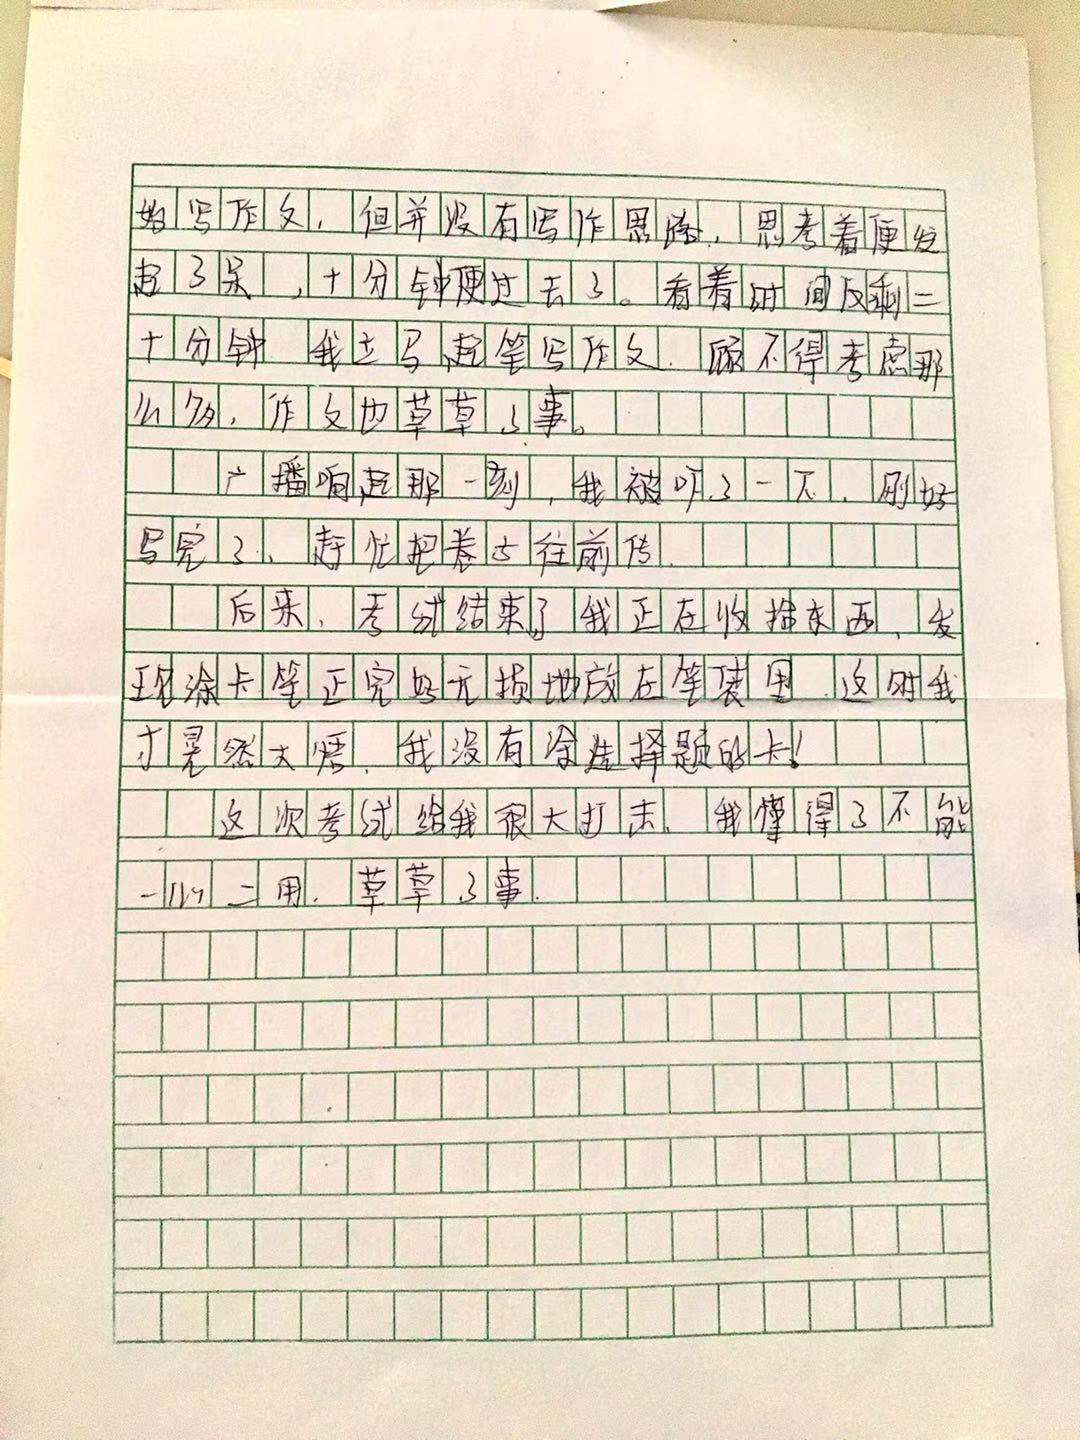 始写作文，但并没有写作思路，思考着便发
起了呆，十分钟便过去了。看着时间仅剩二
十分钟，我立马起笔写作文，顾不得考虑那
么多，作文也草草了事。
广播响起那一刻，我被吓了一下，刚好
写完了，赶忙把卷子往前传，
后来，考试结束了我正在收拾东西，发
现涂卡笔正完好无损地放在笔袋里，这时我
才晃然大悟，我没有涂选择题的卡！
这次考试给我很大打击，我懂得了不能
一心二用，草草了事.